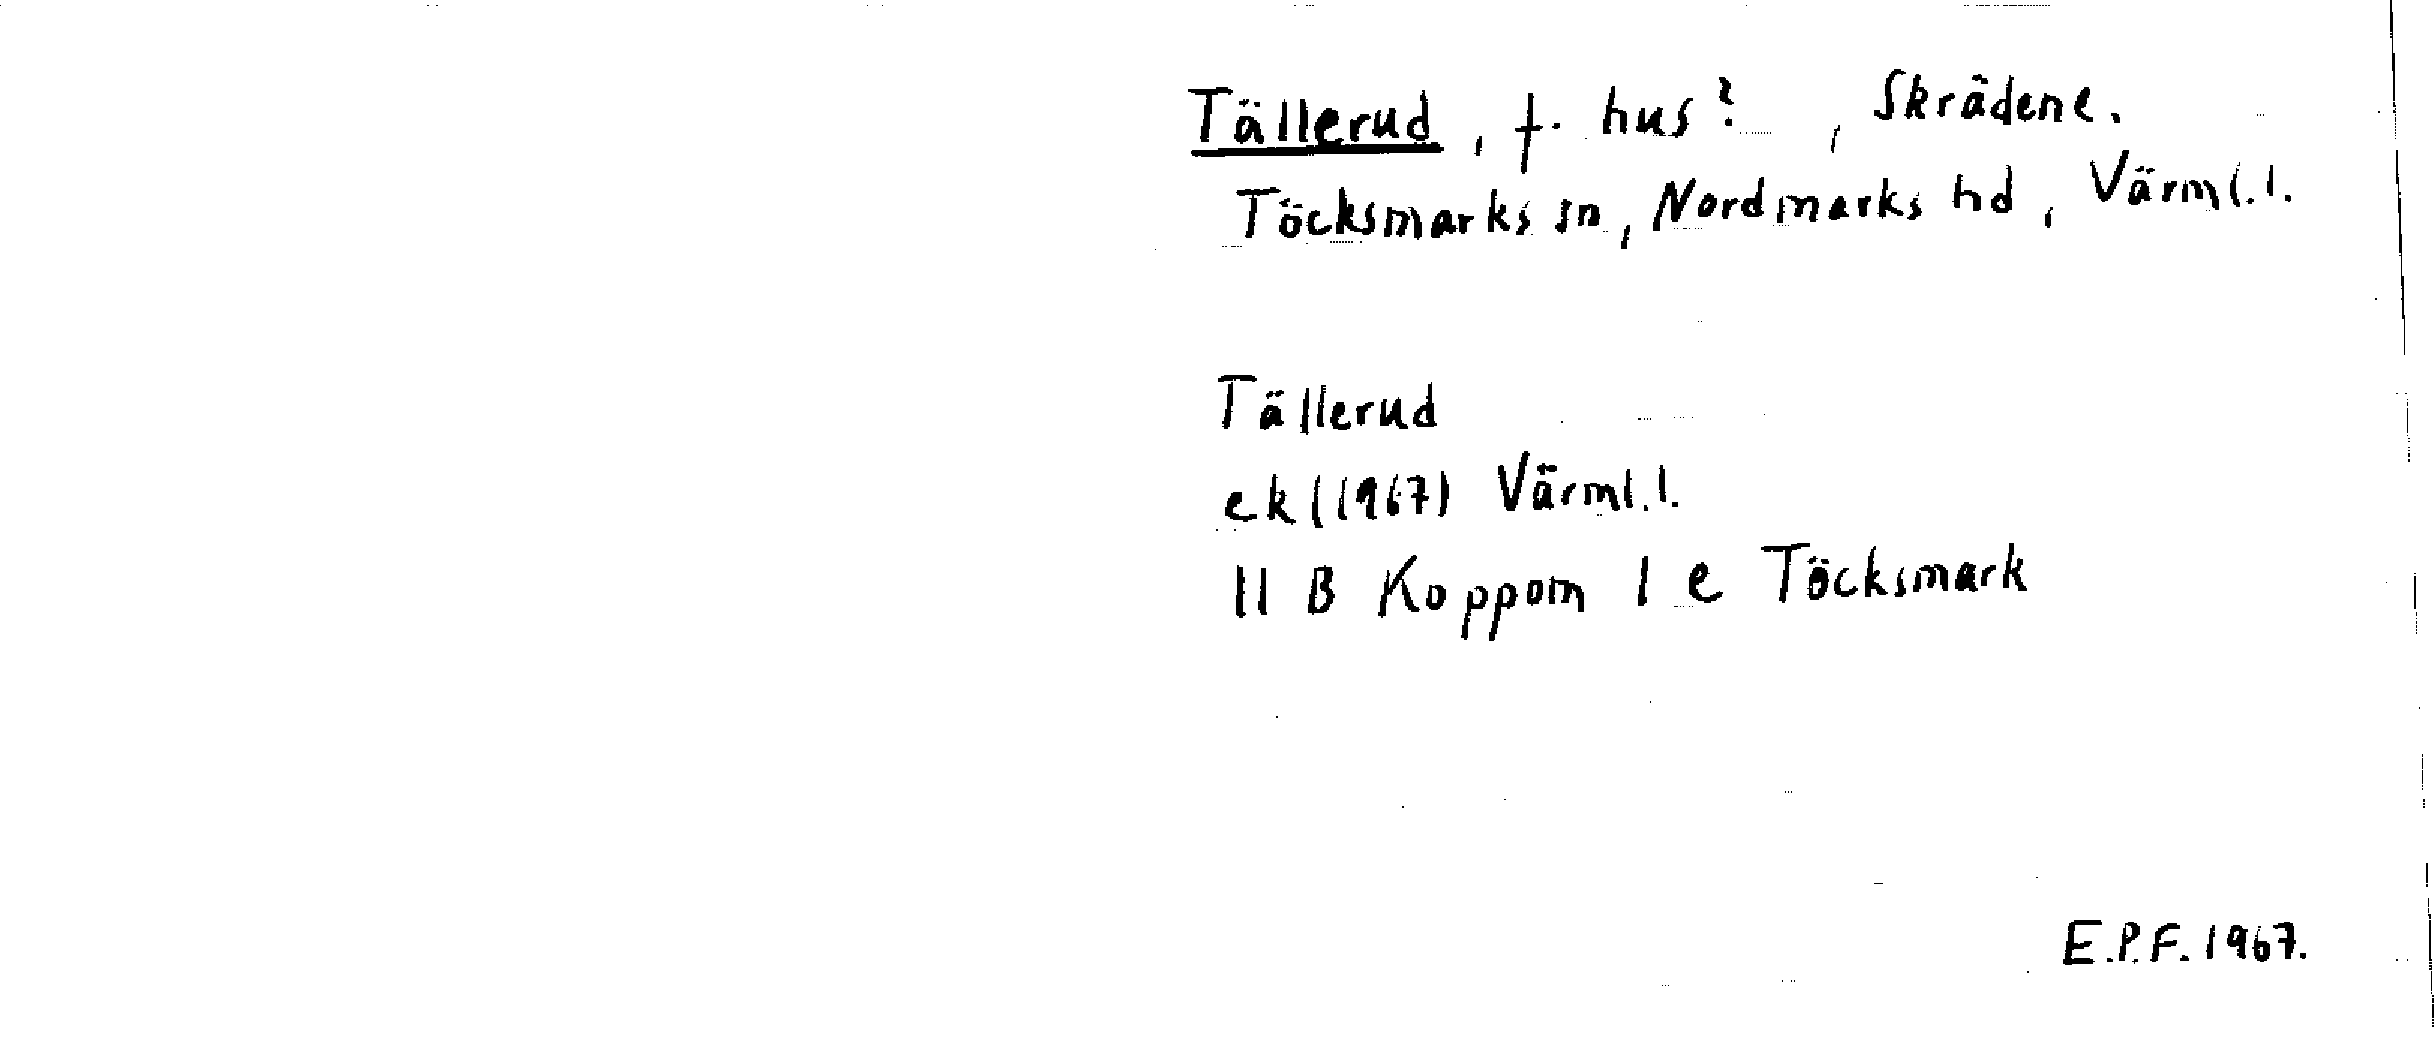 Tällerud, f. hus?, Skrädene.
Töcksmarks sn, Nordmarks hd, Värml.l.
Tällerud
ek (1967) Värml.l.
11 B Koppom 1 e Töcksmark
E.P.F. 1967.